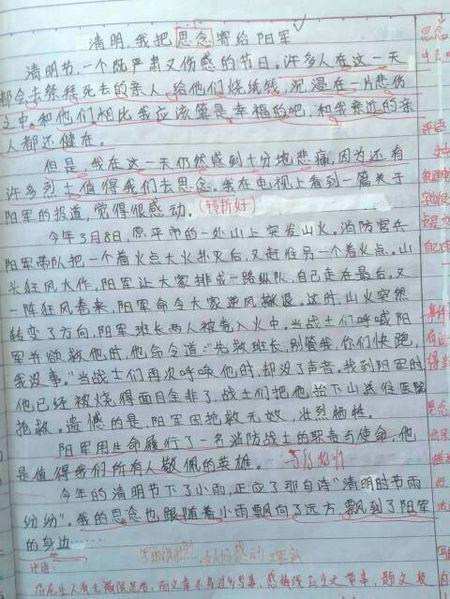 清明,我把思念寄给阳军
清明节,一个既严肃又伤感的节日。许多人在这一天
都会去祭拜死去的亲人,给他们烧纸钱,沉浸在一片悲伤
之中。和他们相比我应该算是幸福的吧,和我亲近的亲
人都还健在。
但是,我在这一天仍然感到十分地悲痛,因为还有
许多烈士值得我们去思念。我在电视上看到一篇关于
阳军的报道,觉得很感动。(转折好)
今年3月8日,原平市的一处山上突发山火。消防官兵
阳军带队把一个着火点大火扑灭后,又赶往另一个着火点。山
头狂风大作,阳军让大家排成一路纵队,自己走在最后。又
一阵狂风卷来,阳军命令大家逆风撤退。这时,山火突然
转变了方向,阳军班长两人被卷入火中。当战士们呼喊阳
军并欲救他时,他命令道:“先救班长,别管我,你们快跑,
我没事。”当战士们再次呼唤他时,却没了声音。找到阳军时
他已经被烧得面目全非了,战士们把他抬下山送往医院
抢救。遗憾的是,阳军因抢救无效,壮烈牺牲。
阳军用生命履行了一名消防战士的职责与使命,他
是值得我们所有人敬佩的英雄。
今年的清明节下了小雨,正应了那句诗“清明时节雨
纷纷”。我的思念也跟随着小雨飘向了远方,飘到了阳军
的身边……